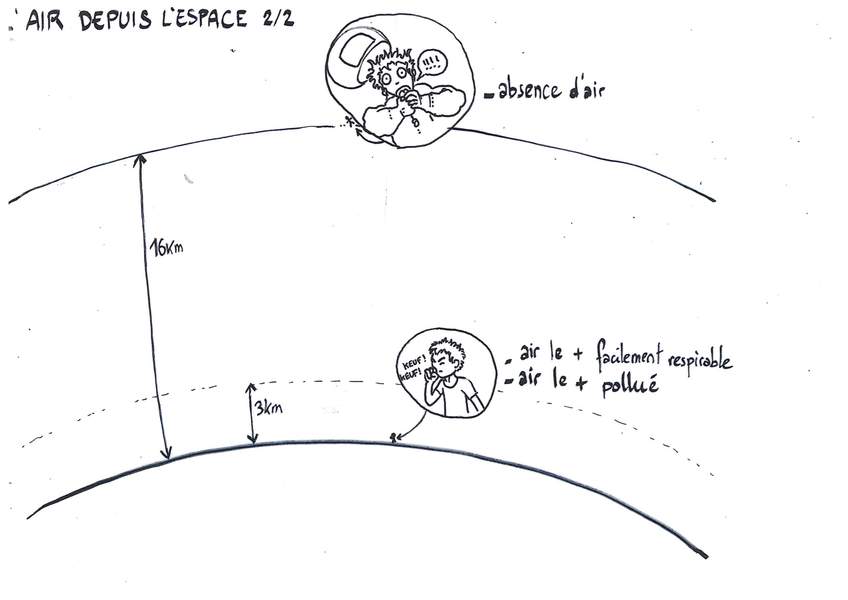 : AIR DEPUIS L'ESPACE 2/2
!!!
- absence d'air
16km
KEUF!
KEUF!
- air le + facilement respirable
- air le + pollué
3km